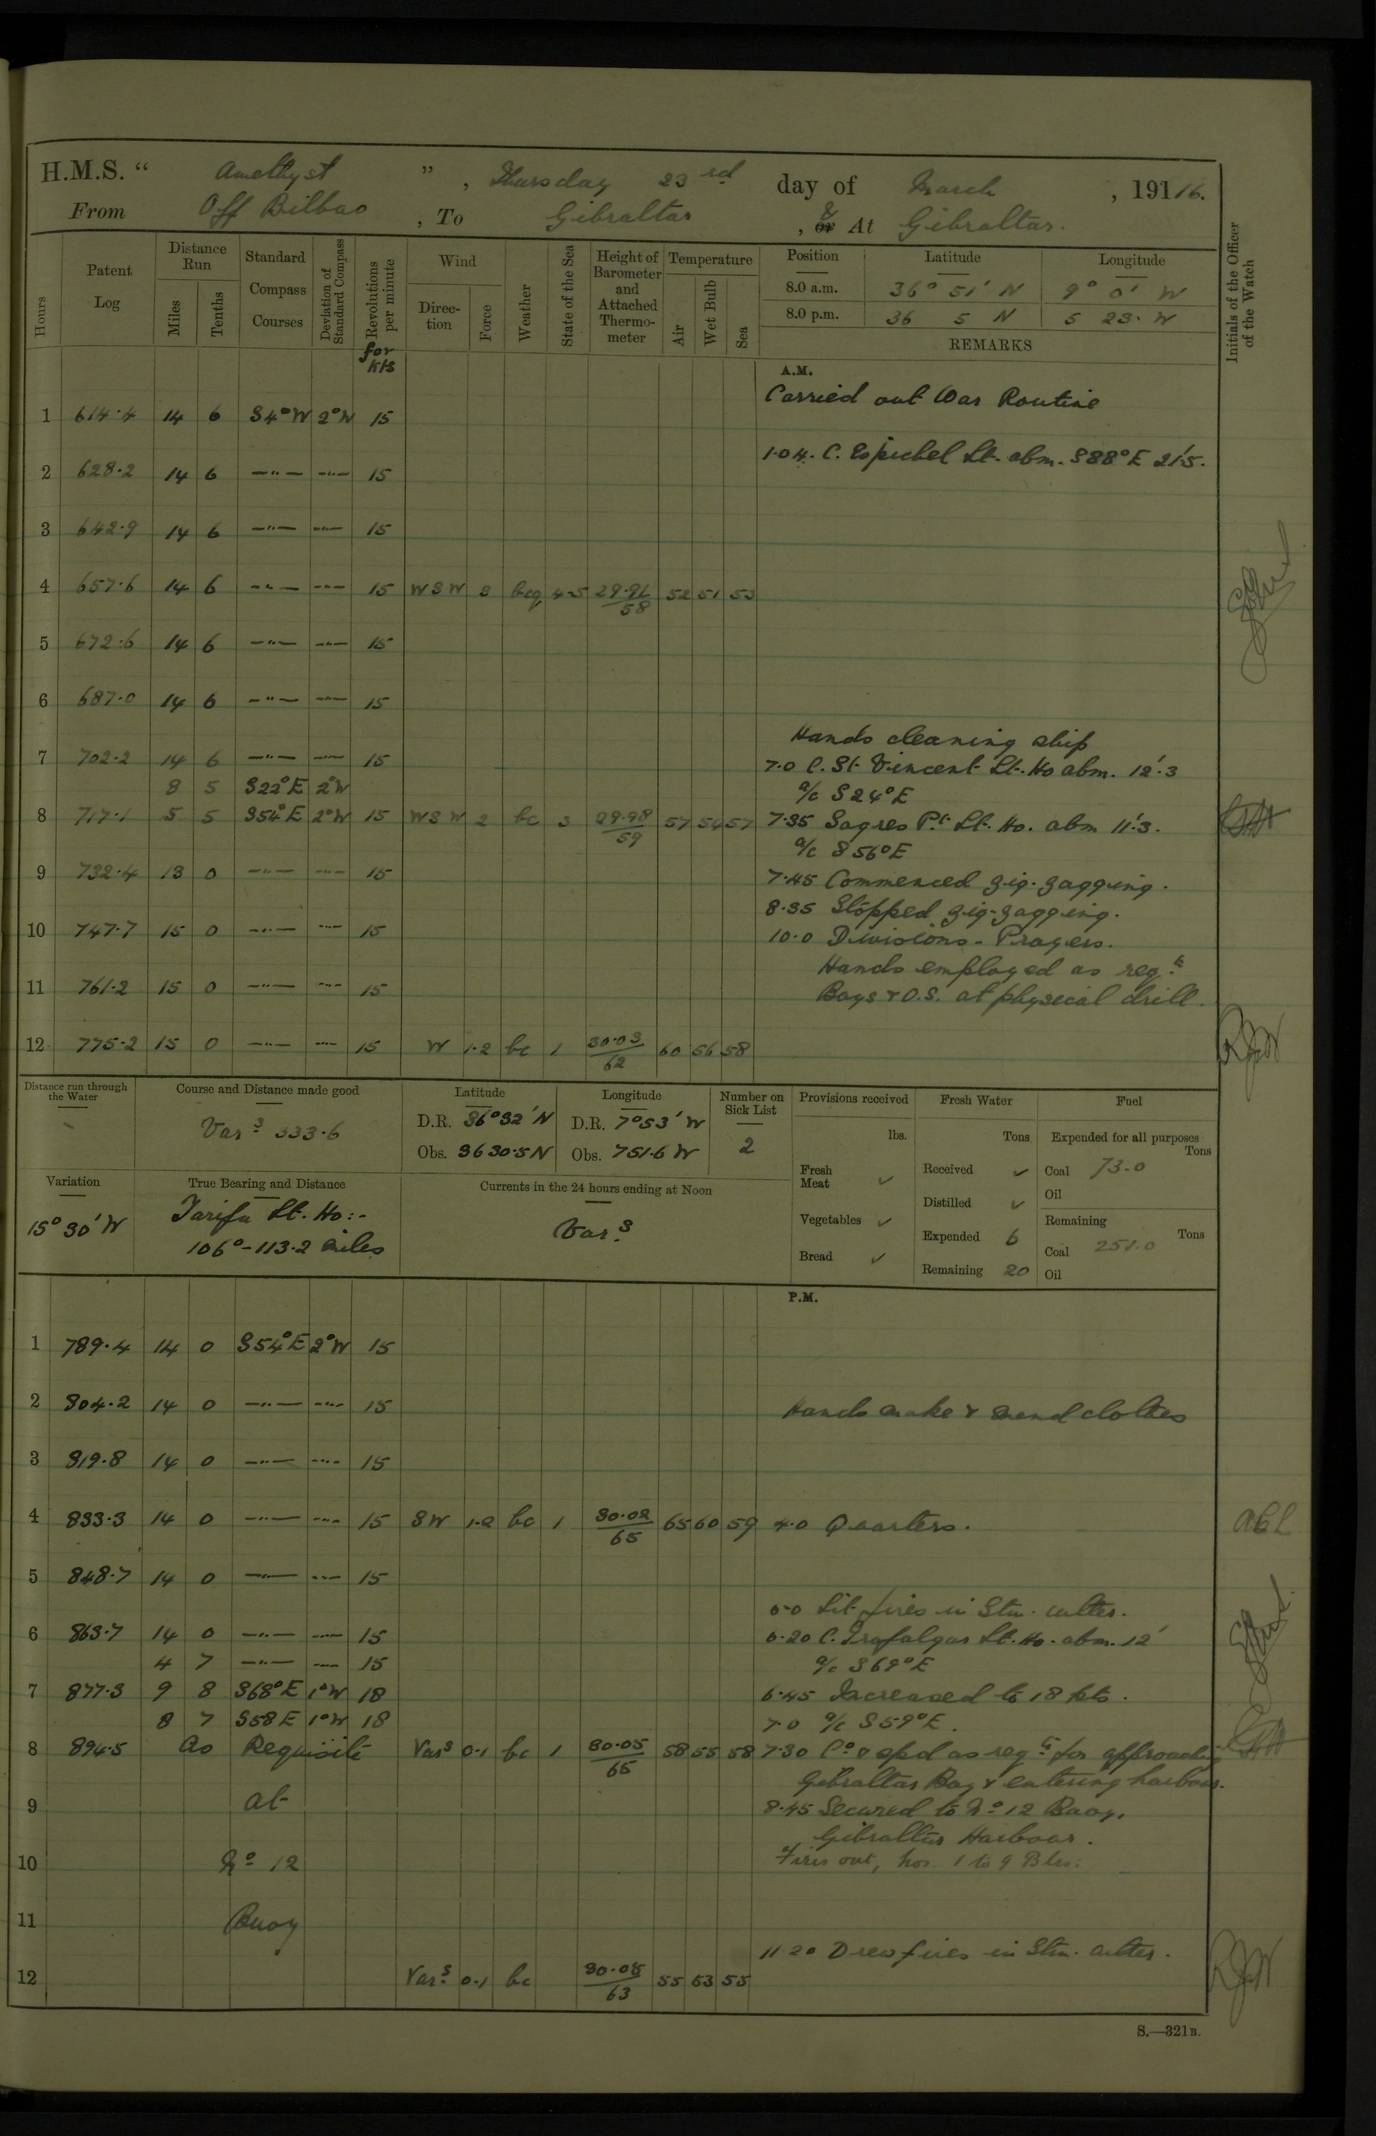 H.M.S. “ Amethyst ” , Thursday 23rd day of March , 19116.
From Off Bilbao , To Gibraltar , or & At Gibraltar.
Hours
Patent Log
Distance Run
Miles
Tenths
Standard Compass Courses
Deviation of Standard Compass
Revolutions per minute
for kts
Wind
Direction
Force
Weather
State of the Sea
Height of Barometer and Attached Thermometer
Temperature
Air
Wet Bulb
Sea
Position Latitude Longitude
8.0 a.m. 36° 51' N 9° 0' W
8.0 p.m. 36 5 N 5 23. W
REMARKS
Initials of the Officer of the Watch
A.M.
Carried out War Routine
1 614.4 14 6 S4°W 2°W 15
1.04. C. Espichel Lt. abm. S88°E 21'.5.
2 628.2 14 6 —"— —"— 15
3 642.9 14 6 —"— —"— 15
4 657.6 14 6 —"— —"— 15 WSW 3 bcq 4-5 29.96/58 52 51 53
5 672.6 14 6 —"— —"— 15
6 687.0 14 6 —"— —"— 15
Hands cleaning ship
7 702.2 14 6 —"— —"— 15 7.0 C. St. Vincent Lt. Ho abm. 12'.3
8 5 S22°E 2°W a/c S24°E
8 717.1 5 5 S54°E 2°W 15 WSW 2 bc 3 29.98/59 57 54 57 7.35 Sagres Pt. Lt. Ho. abm 11'.3.
a/c S56°E
9 732.4 13 0 —"— —"— 15 7.45 Commenced zig-zagging.
8.35 Stopped zig-zagging.
10 747.7 15 0 —"— —"— 15 10.0 Divisions - Prayers.
Hands employed as reqte
11 761.2 15 0 —"— —"— 15 Boys & O.S. at physical drill.
12 775.2 15 0 —"— —"— 15 W 1.2 bc 1 30.03/62 60 56 58
Distance run through the Water
Course and Distance made good
Vars 333.6
Latitude
D.R. 36°32'N
Obs. 36 30.5 N
Longitude
D.R. 7°53'W
Obs. 7 51.6 W
Number on Sick List
2
Provisions received
lbs.
Fresh Meat ✓
Vegetables ✓
Bread ✓
Fresh Water
Tons
Received ✓
Distilled ✓
Expended 6
Remaining 20
Fuel
Expended for all purposes
Tons
Coal 73.0
Oil
Remaining
Tons
Coal 251.0
Oil
Variation
15°30'W
True Bearing and Distance
Tarifa Lt. Ho:-
106°-113.2 miles
Currents in the 24 hours ending at Noon
Vars.
P.M.
1 789.4 14 0 S54°E 2°W 15
2 804.2 14 0 —"— —"— 15 Hands make & mend clothes
3 819.8 14 0 —"— —"— 15
4 833.3 14 0 —"— —"— 15 SW 1.2 bc 1 30.02/65 65 60 59 4.0 Quarters.
5 848.7 14 0 —"— —"— 15
6.0 Lit fires in Stm. cutter.
6 863.7 14 0 —"— —"— 15 6.20 C. Trafalgar Lt. Ho. abm. 12'
4 7 —"— —"— 15 a/c S69°E
7 877.3 9 8 S68°E 1°W 18 6.45 Increased to 18 kts.
8 7 S58E 1°W 18 7.0 a/c S59°E.
8 894.5 As Requisite Vars 0.1 bc 1 30.05/65 58 55 58 7.30 Co & spd as reqte for approaching
Gibraltar Bay & entering harbour.
9 At 8.45 Secured to No 12 Buoy,
Gibraltar Harbour.
10 No 12 Fires out, nos. 1 to 9 Blrs:
11 Buoy
11.20 Drew fires in Stm. cutter.
12 Vars. 0.1 bc 30.05/63 55 53 55
S.—321B.